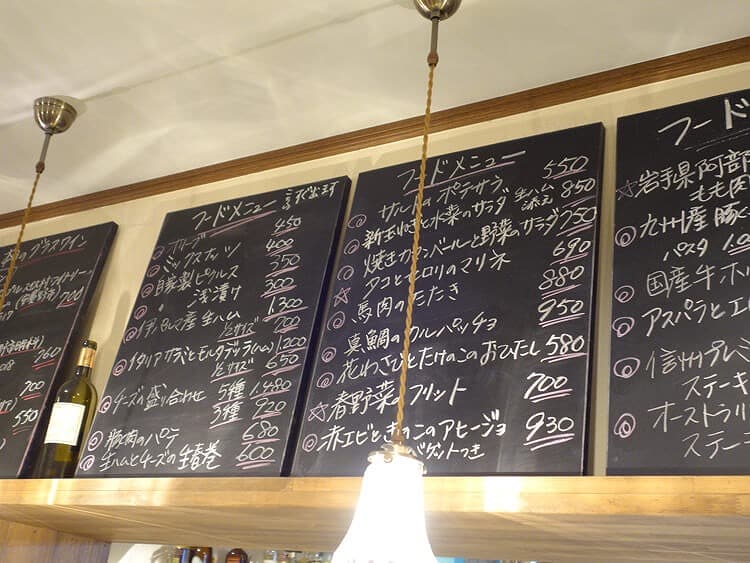 グラスワイン
700
260
700
550
フードメニュー
オリーブ 450
ミックスナッツ 400
自家製ピクルス 350
〃 浅漬け 300
産生ハム 1,300
½サイズ 700
イタリア サラミとモルタデッラ(ハム) 1200
½サイズ 650
チーズ盛り合わせ 5種 1,480
3種 920
豚肉のパテ 680
生ハムとチーズの生春巻 600
フードメニュー
ポテサラ 550
新玉ねぎと水菜のサラダ 生ハム添え 850
焼きカマンベールと野菜のサラダ 750
タコとセロリのマリネ 690
馬肉のたたき 880
真鯛のカルパッチョ 950
花わさびとたけのこのおひたし 580
☆春野菜のフリット 700
赤エビときのこのアヒージョ 930
バゲットつき
フード
☆岩手県阿部
もも肉
九州産豚
パスタ
国産牛ホ
アスパラとエ
信州プレミ
ステーキ
オーストラリ
ステー